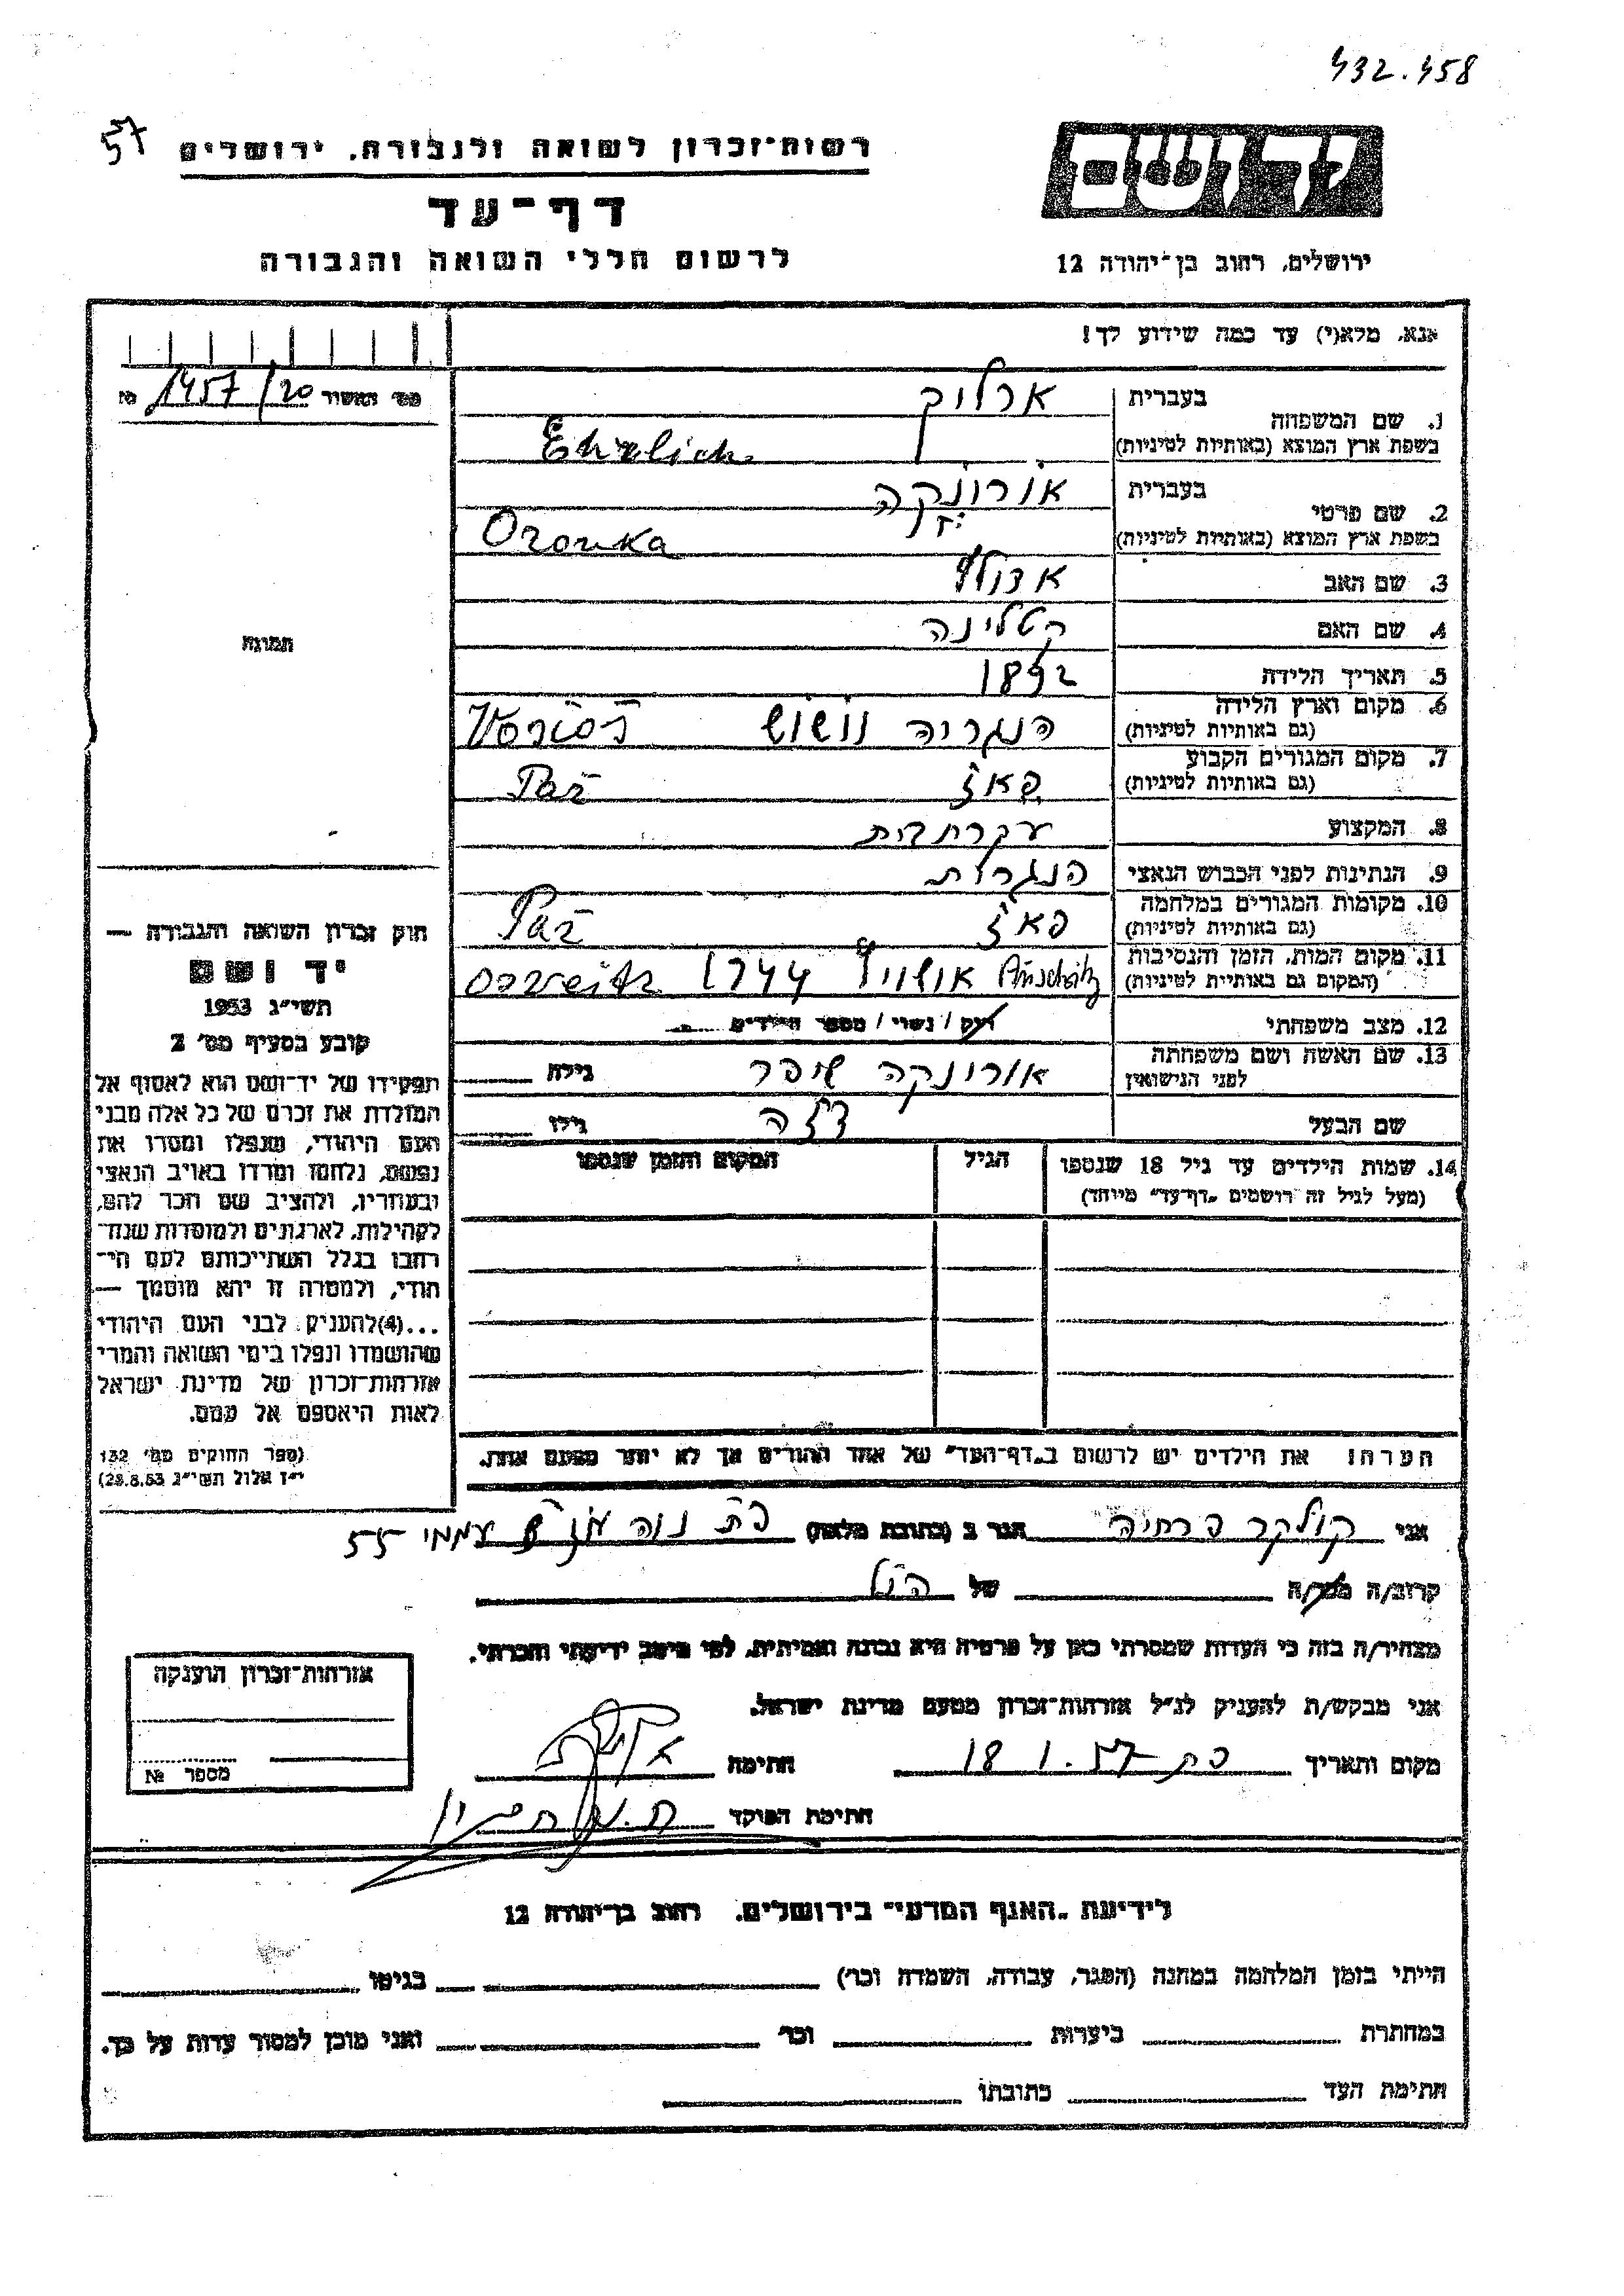 432.458
57
רשות-זכרון לשואה ולגבורה, ירושלים
דף-עד
לרשום חללי השואה והגבורה
ידושם
ירושלים, רחוב בן-יהודה 12
אנא, מלא(י) עד כמה שידוע לך!
מס' האשור 1457/20 №
תמונה
1. שם המשפחה
בעברית
ארליך
בשפת ארץ המוצא (באותיות לטיניות)
Ehrlich
2. שם פרטי
בעברית
אורונקה
בשפת ארץ המוצא (באותיות לטיניות)
Oronka
3. שם האב אדולף
4. שם האם קטלינה
5. תאריך הלידה 1892
6. מקום וארץ הלידה
(גם באותיות לטיניות)
הנגריה
7. מקום המגורים הקבוע
(גם באותיות לטיניות)
פאץ Pač
8. המקצוע עקרת בית
9. הנתינות לפני הכבוש הנאצי הנגרית
10. מקומות המגורים במלחמה
(גם באותיות לטיניות)
פאץ Pač
11. מקום המות, הזמן והנסיבות
(המקום גם באותיות לטיניות)
אושויץ 1944
12. מצב משפחתי רוק / נשוי / מספר הילדים
13. שם האשה ושם משפחתה
לפני הנישואין
אורונקה גילה
שם הבעל גילו
14. שמות הילדים עד גיל 18 שנספו
(מעל לגיל זה רושמים "דף-עד" מיוחד)
הגיל
המקום והזמן שנספו
חוק זכרון השואה והגבורה —
יד ושם
תשי"ג 1953
קובע בסעיף מס' 2
תפקידו של יד-ושם הוא לאסוף אל
המולדת את זכרם של כל אלה מבני
העם היהודי, שנפלו ומסרו את
נפשם, נלחמו ומרדו באויב הנאצי
ובעוזריו, ולהציב שם וזכר להם,
לקהילות, לארגונים ולמוסדות שנח־
רבו בגלל השתייכותם לעם הי־
הודי, ולמטרה זו יהא מוסמך —
...(4)להעניק לבני העם היהודי
שהושמדו ונפלו בימי השואה והמרי
אזרחות-זכרון של מדינת ישראל
לאות היאספם אל עמם.
(ספר החוקים מס' 132
י"ז אלול תשי"ג 28.8.53)
הערה: את הילדים יש לרשום ב"דף-העד" של אחד ההורים אך לא יותר מפעם אחת.
אני הגר ב (כתובת מלאה) עממי 55
קרוב/ה מכר/ה של הנ"ל
מצהיר/ה בזה כי העדות שמסרתי כאן על פרטיה היא נכונה ואמיתית, לפי מיטב ידיעתי והכרתי.
אני מבקש/ת להעניק לנ"ל אזרחות-זכרון מטעם מדינת ישראל.
מקום ותאריך פת 18.1.57 חתימה
חתימת הפוקד
אזרחות-זכרון הוענקה
מספר №
לידיעת "האגף המדעי" בירושלים, רחוב בן-יהודה 12
הייתי בזמן המלחמה במחנה (הסגר, עבודה, השמדה וכו') בגיטו
במחתרת ביערות וכו' ואני מוכן למסור עדות על כך.
חתימת העד כתובתו